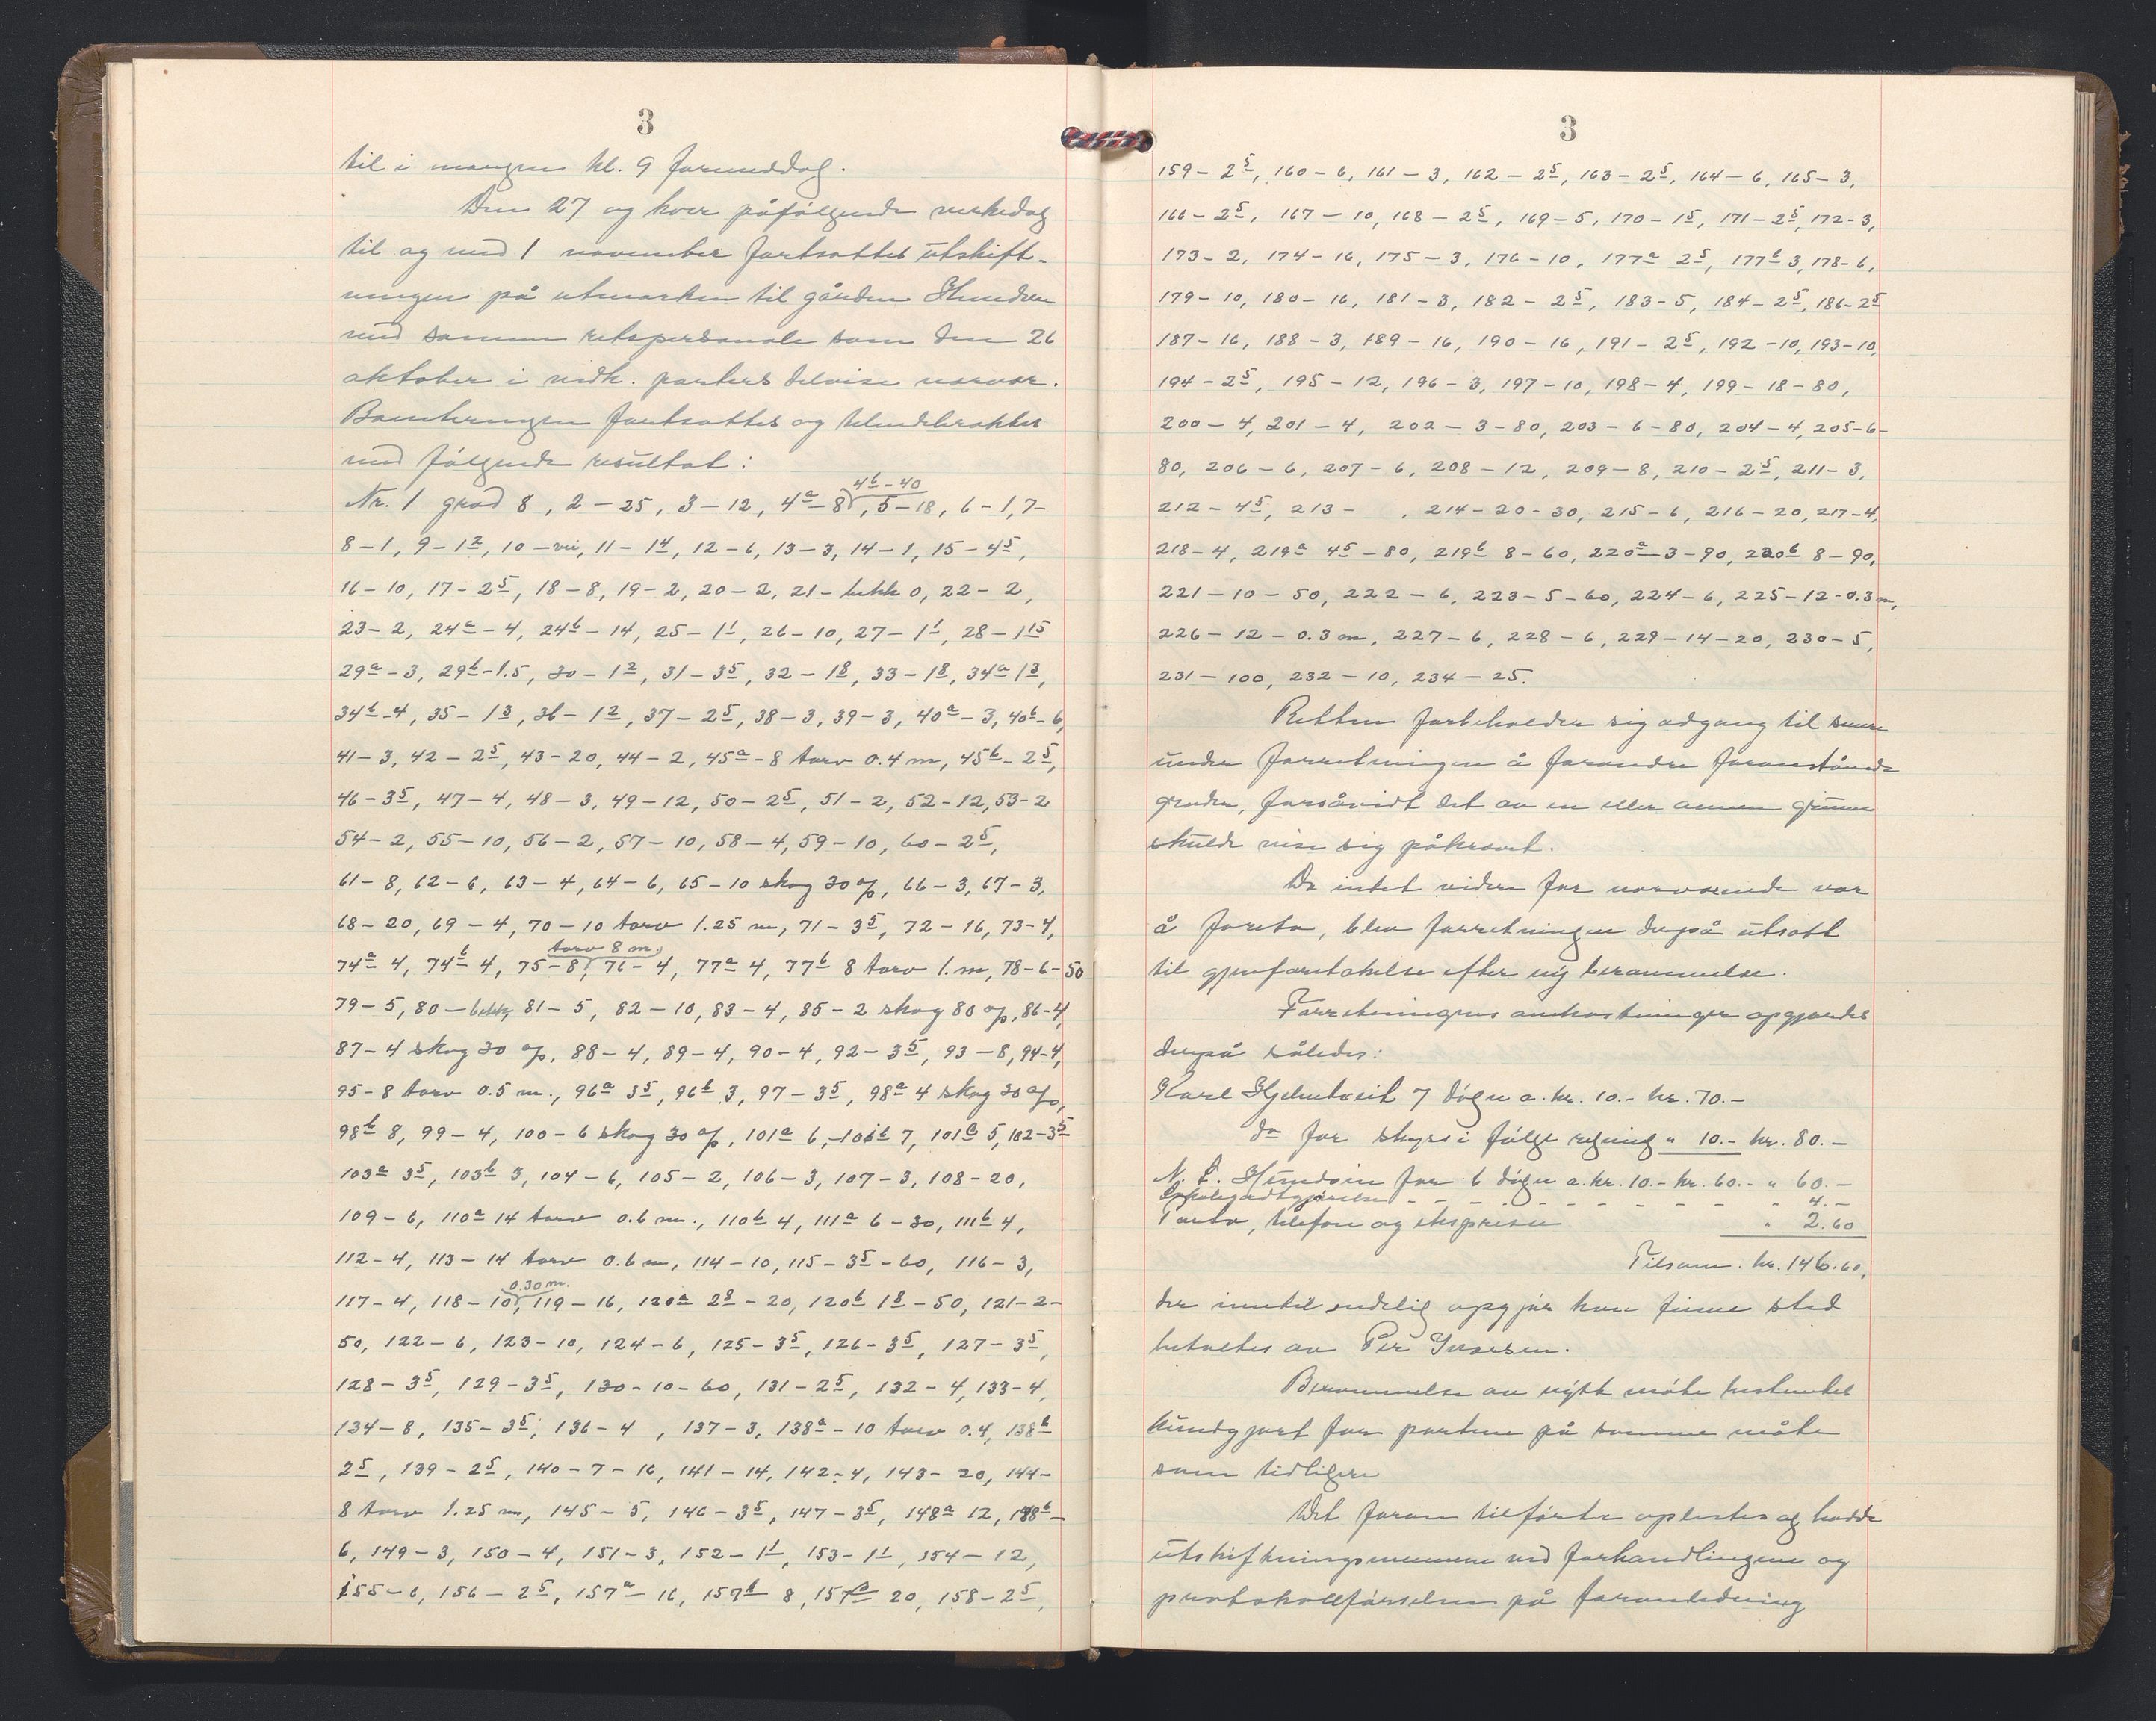 3
til i morgen kl. 9 formiddag.
Den 27 og hver påfølgende virkedag
til og med 1 november fortsattes utskift-
ningen på utmarken til gården Hundven
med samme retspersonale som den 26
oktober i vedk. parters delvise nærvær.
Boniteringen fortsattes og tilendebraktes
med følgende resultat:
4b - 40
Nr. 1 grad 8, 2 - 25, 3 - 12, 4a - 8, 5 - 18, 6 - 1, 7 -
8 - 1, 9 - 1 2, 10 - vei, 11 - 1 4, 12 - 6, 13 - 3, 14 - 1, 15 - 4 5,
16 - 10, 17 - 2 5, 18 - 8, 19 - 2, 20 - 2, 21 - bekk 0, 22 - 2,
23 - 2, 24a - 4, 24b - 14, 25 - 1 1, 26 - 10, 27 - 1 1, 28 - 1 15
29a - 3, 29b - 1.5, 30 - 1 2, 31 - 3 5, 32 - 1 8, 33 - 1 8, 34a 1 3,
34b - 4, 35 - 1 3, 36 - 1 2, 37 - 2 5, 38 - 3, 39 - 3, 40a - 3, 40b - 6,
41 - 3, 42 - 2 5, 43 - 20, 44 - 2, 45a - 8 torv 0.4 m, 45b - 2 5,
46 - 3 5, 47 - 4, 48 - 3, 49 - 12, 50 - 2 5, 51 - 2, 52 - 12, 53 - 2
54 - 2, 55 - 10, 56 - 2, 57 - 10, 58 - 4, 59 - 10, 60 - 2 5,
61 - 8, 62 - 6, 63 - 4, 64 - 6, 65 - 10 skog 30 %, 66 - 3, 67 - 3,
68 - 20, 69 - 4, 70 - 10 torv 1.25 m, 71 - 3 5, 72 - 16, 73 - 4,
torv 8 m.
74a 4, 74b 4, 75 - 8, 76 - 4, 77a 4, 77b 8 torv 1. m, 78 - 6 - 50
79 - 5, 80 - bekk, 81 - 5, 82 - 10, 83 - 4, 85 - 2 skog 80 %, 86 - 4,
87 - 4 skog 30 %, 88 - 4, 89 - 4, 90 - 4, 92 - 3 5, 93 - 8, 94 - 4,
95 - 8 torv 0.5 m., 96a 3 5, 96b 3, 97 - 3 5, 98a 4 skog 30 %,
98b 8, 99 - 4, 100 - 6 skog 30 %, 101a 6, 101b 7, 101c 5, 102 - 3 5
103a 3 5, 103b 3, 104 - 6, 105 - 2, 106 - 3, 107 - 3, 108 - 20,
109 - 6, 110a 14 torv 0.6 m., 110b 4, 111a 6 - 30, 111b 4,
112 - 4, 113 - 14 torv 0.6 m, 114 - 10, 115 - 3 5 - 60, 116 - 3,
0.30 m.
117 - 4, 118 - 10, 119 - 16, 120a 2 8 - 20, 120b 1 8 - 50, 121 - 2 -
50, 122 - 6, 123 - 10, 124 - 6, 125 - 3 5, 126 - 3 5, 127 - 3 5,
128 - 3 5, 129 - 3 5, 130 - 10 - 60, 131 - 2 5, 132 - 4, 133 - 4,
134 - 8, 135 - 3 5, 136 - 4, 137 - 3, 138a - 10 torv 0.4, 138b
2 5, 139 - 2 5, 140 - 7 - 16, 141 - 14, 142 - 4, 143 - 20, 144 -
8 torv 1.25 m, 145 - 5, 146 - 3 5, 147 - 3 5, 148a 12, 148b -
6, 149 - 3, 150 - 4, 151 - 3, 152 - 1 1, 153 - 1 1, 154 - 12,
155 - 6, 156 - 2 5, 157a - 16, 157b 8, 157c 20, 158 - 2 5,
3
159 - 2 5, 160 - 6, 161 - 3, 162 - 2 5, 163 - 2 5, 164 - 6, 165 - 3,
166 - 2 5, 167 - 10, 168 - 2 5, 169 - 5, 170 - 1 5, 171 - 2 5, 172 - 3,
173 - 2, 174 - 16, 175 - 3, 176 - 10, 177a 2 5, 177b 3, 178 - 6,
179 - 10, 180 - 16, 181 - 3, 182 - 2 5, 183 - 5, 184 - 2 5, 186 - 2 5
187 - 16, 188 - 3, 189 - 16, 190 - 16, 191 - 2 5, 192 - 10, 193 - 10,
194 - 2 5, 195 - 12, 196 - 3, 197 - 10, 198 - 4, 199 - 18 - 80,
200 - 4, 201 - 4, 202 - 3 - 80, 203 - 6 - 80, 204 - 4, 205 - 6 -
80, 206 - 6, 207 - 6, 208 - 12, 209 - 8, 210 - 2 5, 211 - 3,
212 - 4 5, 213 - , 214 - 20 - 30, 215 - 6, 216 - 20, 217 - 4,
218 - 4, 219a 4 5 - 80, 219b 8 - 60, 220a - 3 - 90, 220b 8 - 90,
221 - 10 - 50, 222 - 6, 223 - 5 - 60, 224 - 6, 225 - 12 - 0.3 m,
226 - 12 - 0.3 m, 227 - 6, 228 - 6, 229 - 14 - 20, 230 - 5,
231 - 100, 232 - 10, 234 - 25.
Retten forbeholder sig adgang til senere
under forretningen å forandre foranstående
grader, forsåvidt det av en eller annen grunn
skulde vise sig påkrævt.
Da intet videre for nærværende var
å foreta, blev forretningen derpå utsatt
til gjenforetakelse efter ny berammelse.
Forretningens omkostninger opgjordes
derpå således:
Karl Hjelmtveit 7 døgn a. kr. 10.- kr. 70.-
do for skyss i følge regning " 10.- kr. 80.-
N. L. Hundvin for 6 døgn a. kr. 10.- kr. 60.- " 60.-
Lokalgodtgjørelse - - - - " 4.-
Porto, telefon og ekspresse " 2.60
Tilsam. kr. 146.60,
der inntil endelig opgjør kan finne sted
betaltes av Per Ivarsen.
Berammelse av nytt møte besluttet
kundgjort for partene på samme måte
som tidligere
Det foran tilførte oplestes og hadde
utskiftningsmennene ved forhandlingene og
protokollførselen på foranledning